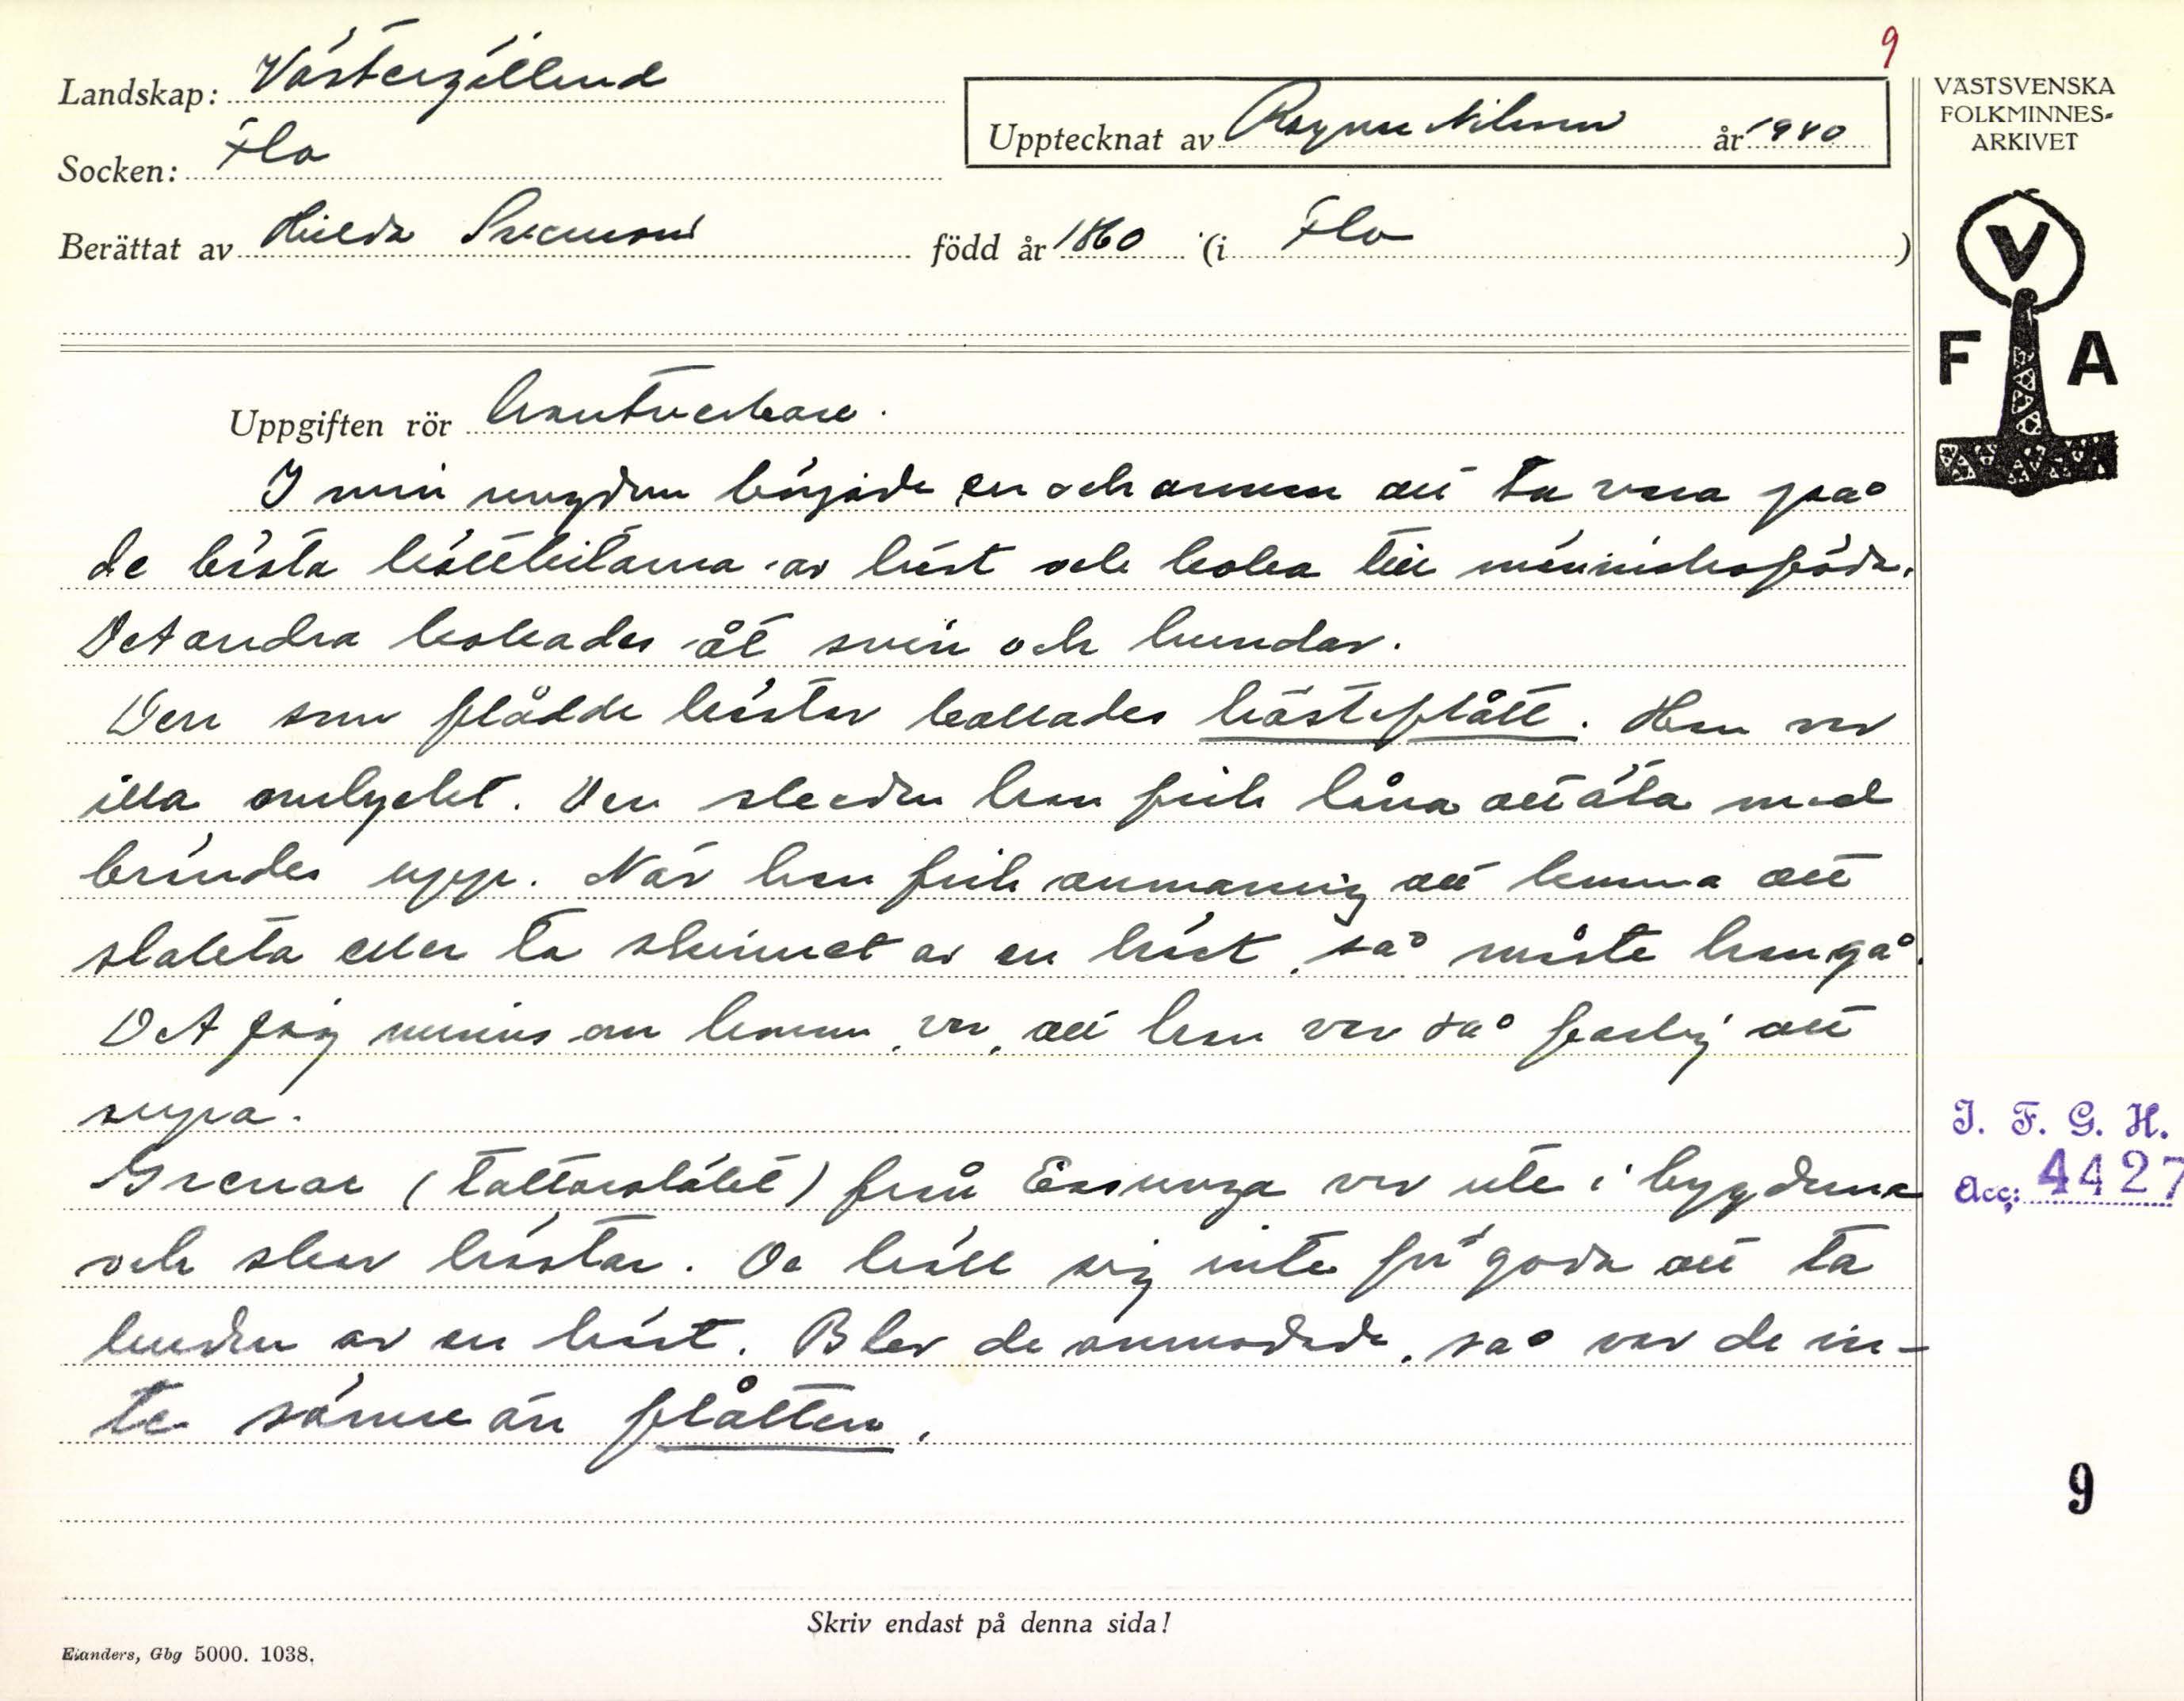 9
Landskap: Västergötland
Socken: Flo
Upptecknat av Ragnar Nilsson år 1940
Berättat av Hulda född år 1860 (i Flo)
VÄSTSVENSKA
FOLKMINNES-
ARKIVET
V
F A
Uppgiften rör hantverkare.
I min ungdom började en och annan att ta vara på
de bästa köttbitarna av häst och koka till människoföda.
Det andra kokades åt svin och hundar.
Den som flådde hästar kallades hästaflått. Han var
illa omtyckt. Den skeden han fick låna att äta med
brändes upp. När han fick anmaning att komma att
slakta eller ta skinnet av en häst, så måste han gå.
Det jag minns om honom, var, att han var så farlig att
supa.
Grenar (tattarsläkt) från Essunga var ute i bygderna
och skar hästar. De höll sig inte för goda att ta
huden av en häst. Blev de anmodade, så var de in-
te sämre än flåtten.
I. F. G. H.
Acc: 4427
9
Skriv endast på denna sida!
Elanders, Gbg 5000. 1038.